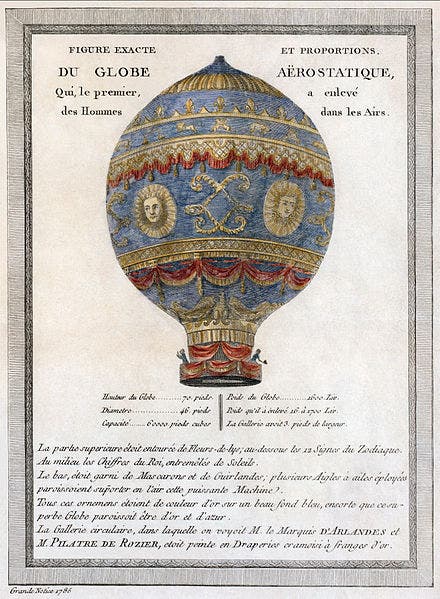 FIGURE EXACTE ET PROPORTIONS,
DU GLOBE AËROSTATIQUE,
Qui, le premier, a enlevé
des Hommes dans les Airs.
Hauteur du Globe............70. pieds
Diametre..................46. pieds
Capacité........60000 pieds cubes
Poids du Globe.........1600 Liv.
Poids qu'il à enlevé 16 à 1700 Liv.
La Gallerie avoit 3. pieds de largeur.
La partie superieure étoit entourée de Fleurs-de-lys, au-dessous les 12 Signes du Zodiaque.
Au milieu les Chiffres du Roi, entremêlés de Soleils.
Le bas, étoit garni de Mascarons et de Guirlandes; plusieurs Aigles à ailes éployées
paroissoient suporter en l'air cette puissante Machine).
Tous ces ornemens étoient de couleur d'or sur un beau fond bleu, ensorte que ce su-
perbe Globe paroissoit être d'or et d'azur.
La Gallerie circulaire, dans laquelle on voyoit M. le Marquis D'ARLANDES et
M. PILATRE DE ROZIER, etoit peinte en Draperies cramoisi à franges d'or.
Grande Notice 1786